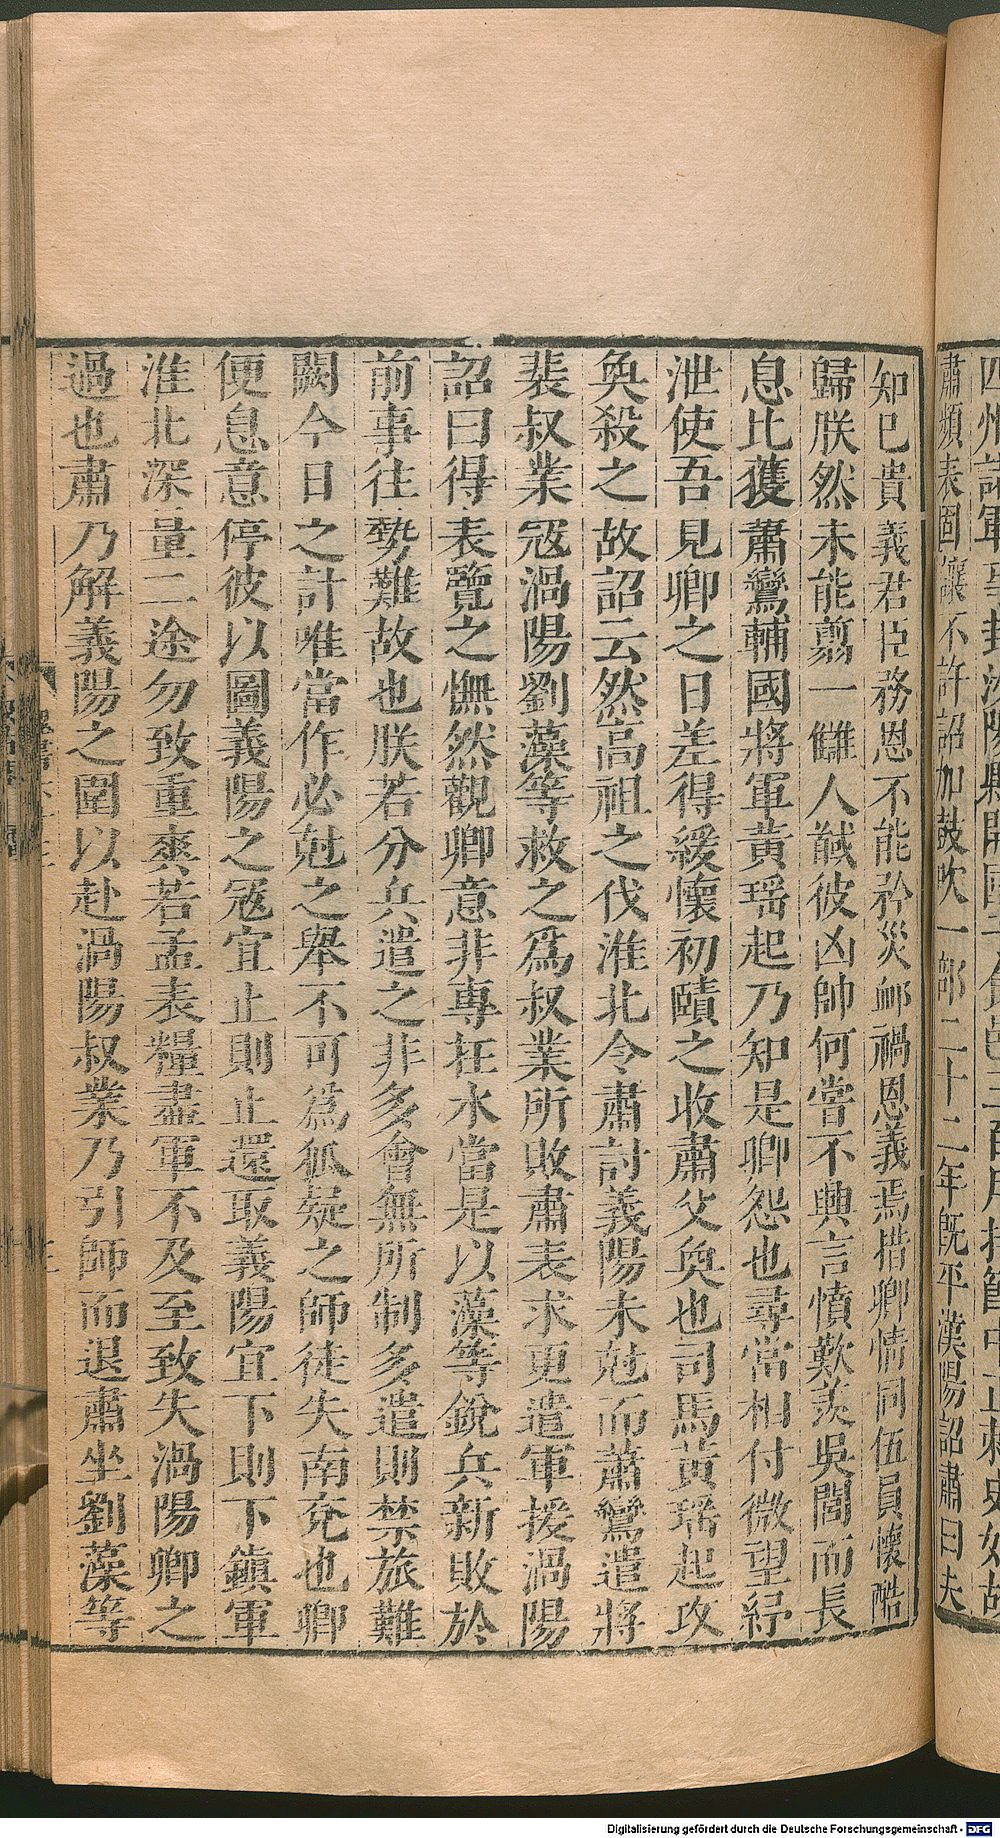 四州諸軍事封汝陽縣開國子食邑三百戶持節中正刺史如故
肅頻表固讓不許詔加鼓吹一部二十二年旣平漢陽詔肅曰夫
知已貴義君臣務恩不能矜災䘏禍恩義焉措卿情同伍員懷酷
歸朕然未能翦一讎人馘彼凶帥何嘗不興言憤歎羡吳閭而長
息比獲蕭鸞輔國將軍黃瑶起乃知是卿怨也尋當相付微望紓
泄使吾見卿之日差得緩懷初賾之收肅父奐也司馬黃瑶起攻
奐殺之故詔云然高祖之伐淮北令肅討義陽未尅而蕭鸞遣將
裴叔業宼渦陽劉藻等救之爲叔業所敗肅表求更遣軍援渦陽
詔曰得表覽之憮然觀卿意非專在水當是以藻等銳兵新敗於
前事往勢難故也朕若分兵遣之非多會無所制多遣則禁旅難
闕今日之計唯當作必尅之舉不可爲狐疑之師徒失南兖也卿
便息意停彼以圖義陽之宼宜止則止還取義陽宜下則下鎮軍
淮北深量二途勿致重爽若孟表糧盡軍不及至致失渦陽卿之
過也肅乃解義陽之圍以赴渦陽叔業乃引師而退肅坐劉藻等
Digitalisierung gefördert durch die Deutsche Forschungsgemeinschaft - DFG